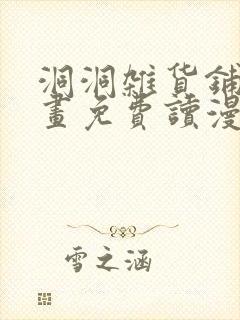 洞洞雑貨鋪
畫免費讀漫
雪之涵